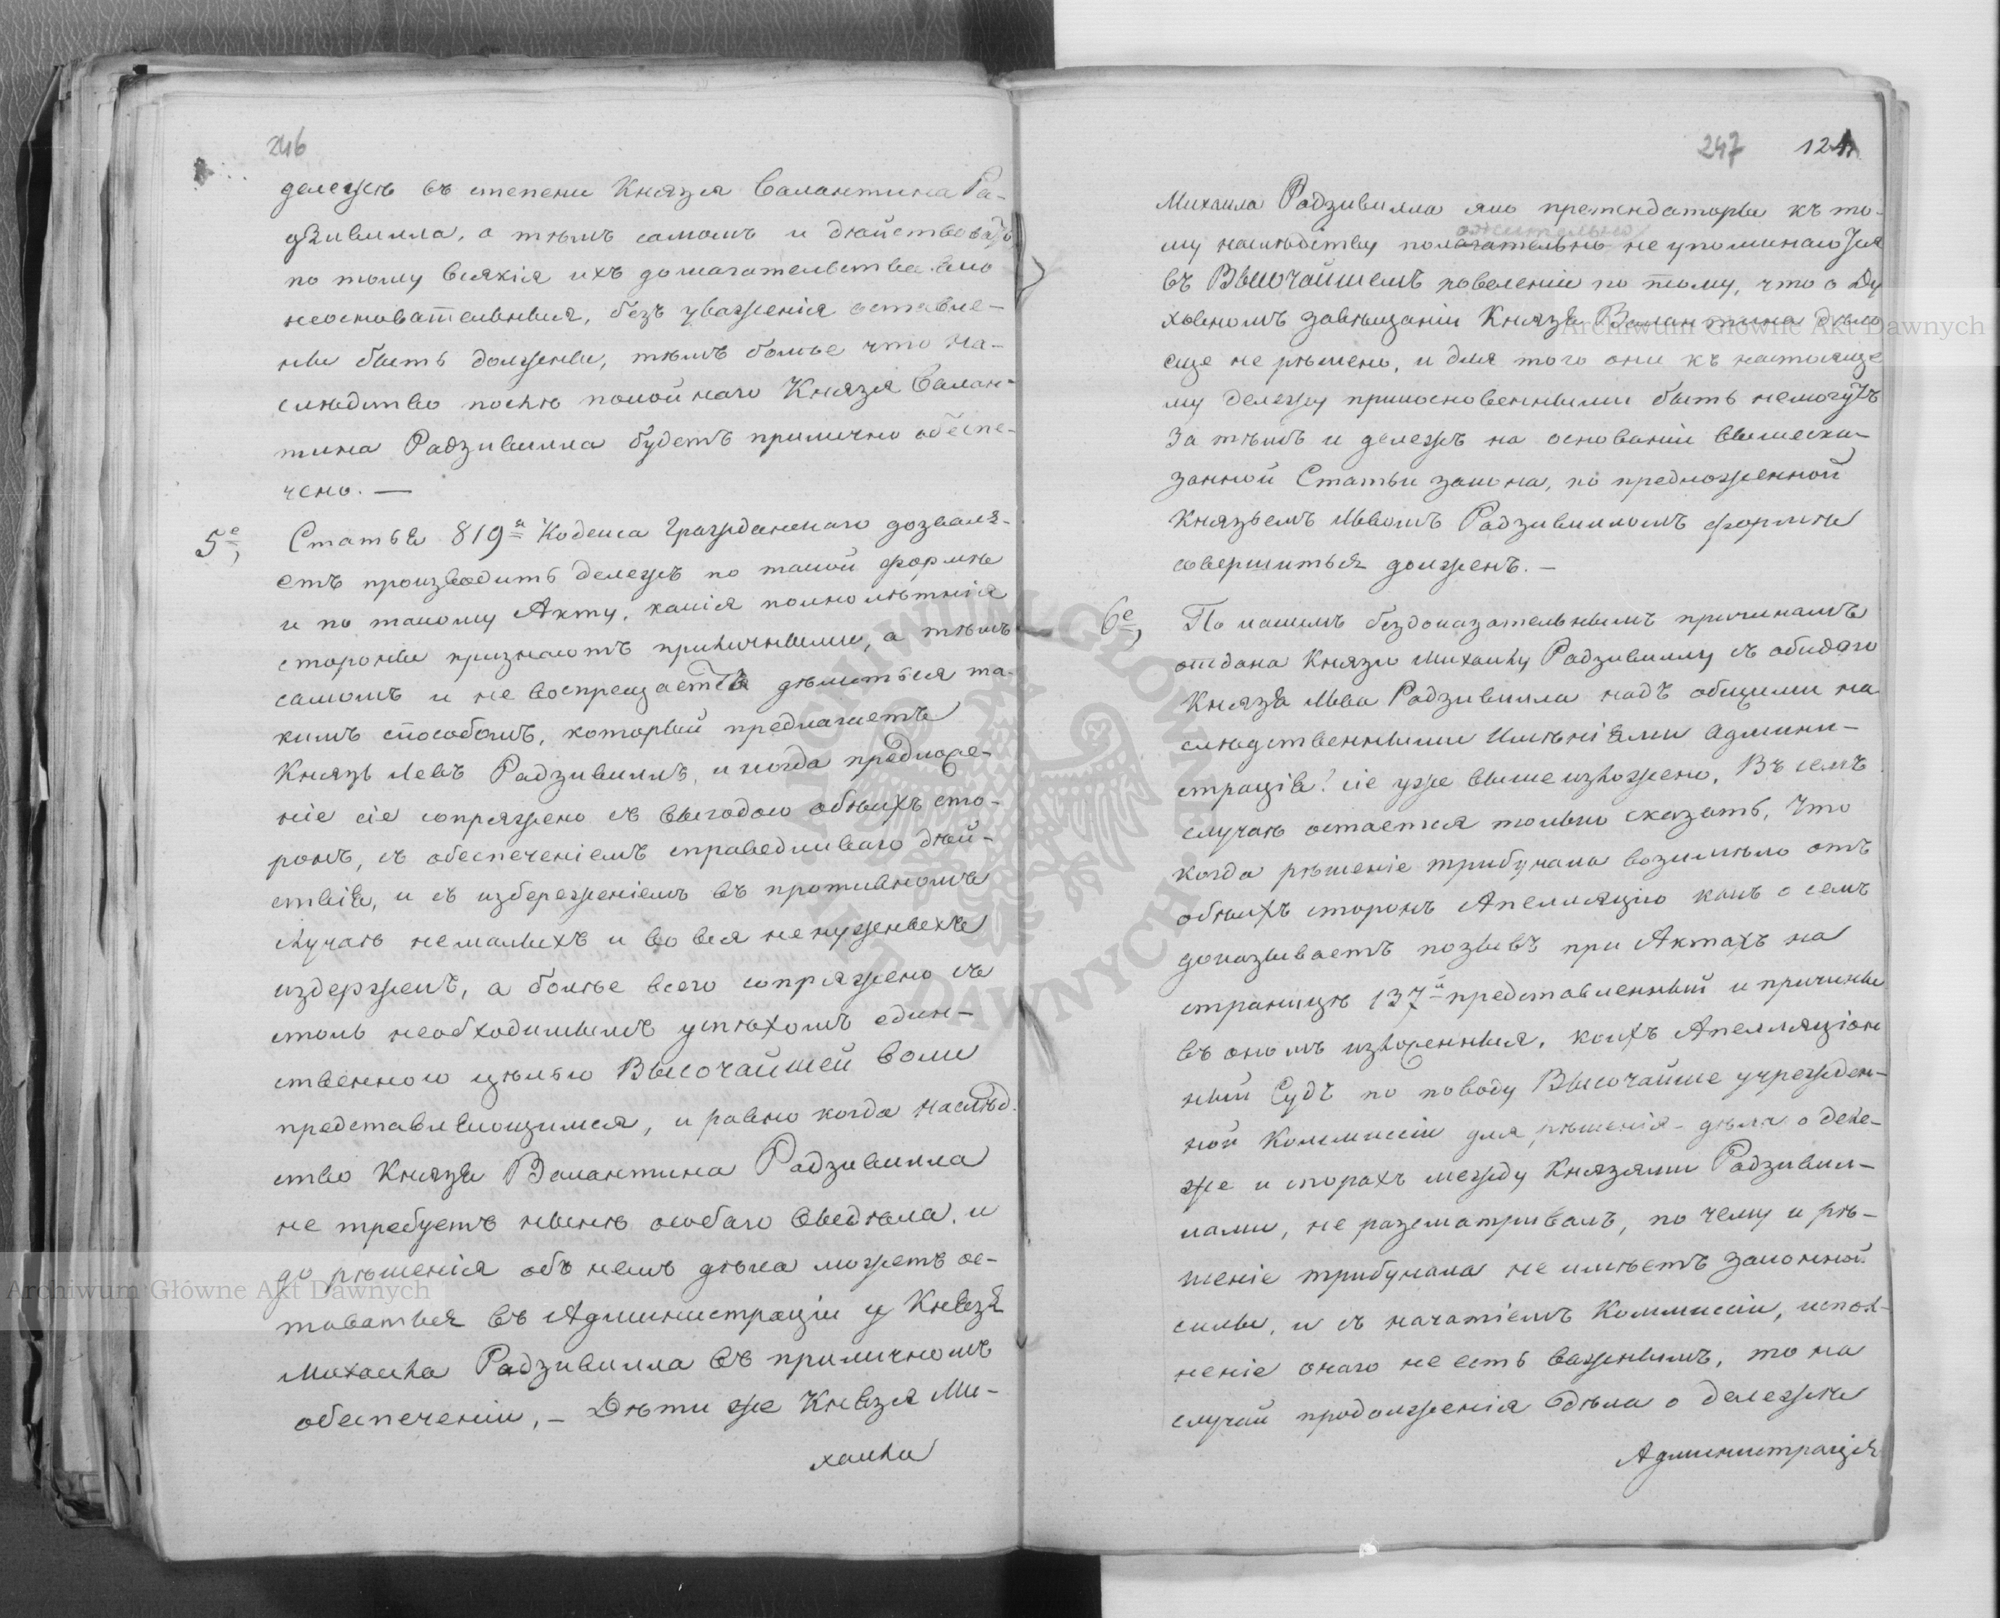 246
дележѣ въ степени Князя Валантина Ра-
дзивилла, а тѣмъ самомъ и дѣйствовать
по тому всякія ихъ домагательства яко
неосновательныя, безъ уваженія оставле-
ны быть должны, тѣмъ болье что на-
слѣдство послѣ покойнаго Князя Валан-
тина Радзивилла будетъ прилично обеспе-
чено. —
5е, Статья 819я Кодекса Гражданскаго дозваля-
етъ производить дележъ по такой формѣ
и по такому Акту, какія полнолѣтнія
стороны признаютъ приличными, а тѣмъ
самомъ и не воспрещается дѣлиться та-
кимъ способомъ, который предлагаетъ
Князь Левъ Радзивиллъ, и когда предложе-
ніе сіе сопряжено съ выгодою обѣихъ сто-
ронъ, съ обеспеченіемъ справедливаго дѣй-
ствія, и съ избереженіемъ въ противномъ
случаѣ немалыхъ и во вся ненужныхъ
издержекъ, а болѣе всего сопряжено съ
столь необходимымъ успѣхомъ един-
ственною цѣлью Высочайшей воли
представляющимся, и равно когда наслѣд-
ство Князя Валантина Радзивилла
не требуетъ нынѣ особаго выдѣла, и
до рѣшенія объ немъ дѣла можетъ ос-
таваться въ Администраціи у Князя
Михаила Радзивилла въ приличномъ
обеспеченіи, — Дѣти же Князя Ми-
хаила
247 124
Михаила Радзивилла яко претендаторы къ то-
му наслѣдству положительно не упоминаются
въ Высочайшемъ повеленіи по тому, что о Ду
ховномъ завѣщаніи Князя Валантина дѣло
еще не рѣшено, и для того они къ настояще
му дележу прикосновенными быть немогутъ
За тѣмъ и дележъ на основаніи вышеска-
занной Статьи закона, по предложенной
Княземъ Львомъ Радзивилломъ формѣ
совершиться долженъ. —
6е, По какимъ бездоказательнымъ причинамъ
отдана Князю Михаилу Радзивиллу съ обидою
Князя Льва Радзивилла надъ общими на
слѣдственными Имѣніями Админи-
страція! сіе уже выше изложено, Въ семъ
случаѣ остается только сказать, что
когда рѣшеніе трибунала возимѣло отъ
обѣихъ сторонъ Апелляцію какъ о семъ
доказываетъ позывъ при Актахъ на
страницѣ 137й представленный и причины
въ ономъ изложенныя, коихъ Апелляціон
ный Судъ по поводу Высочайше учрежден-
ной Коммиссіи для рѣшенія дѣлъ о деле-
же и спорахъ между Князями Радзивил-
лами, не разсматривалъ, по чему и рѣ-
шеніе трибунала не имѣетъ законной
силы, и съ начатіемъ Коммиссіи, испол-
неніе онаго не есть важнымъ, то на
случай продолженія дѣла о дележѣ
Администрація
Archiwum Główne Akt Dawnych
Archiwum Główne Akt Dawnych
ARCHIWUM GŁÓWNE AKT DAWNYCH